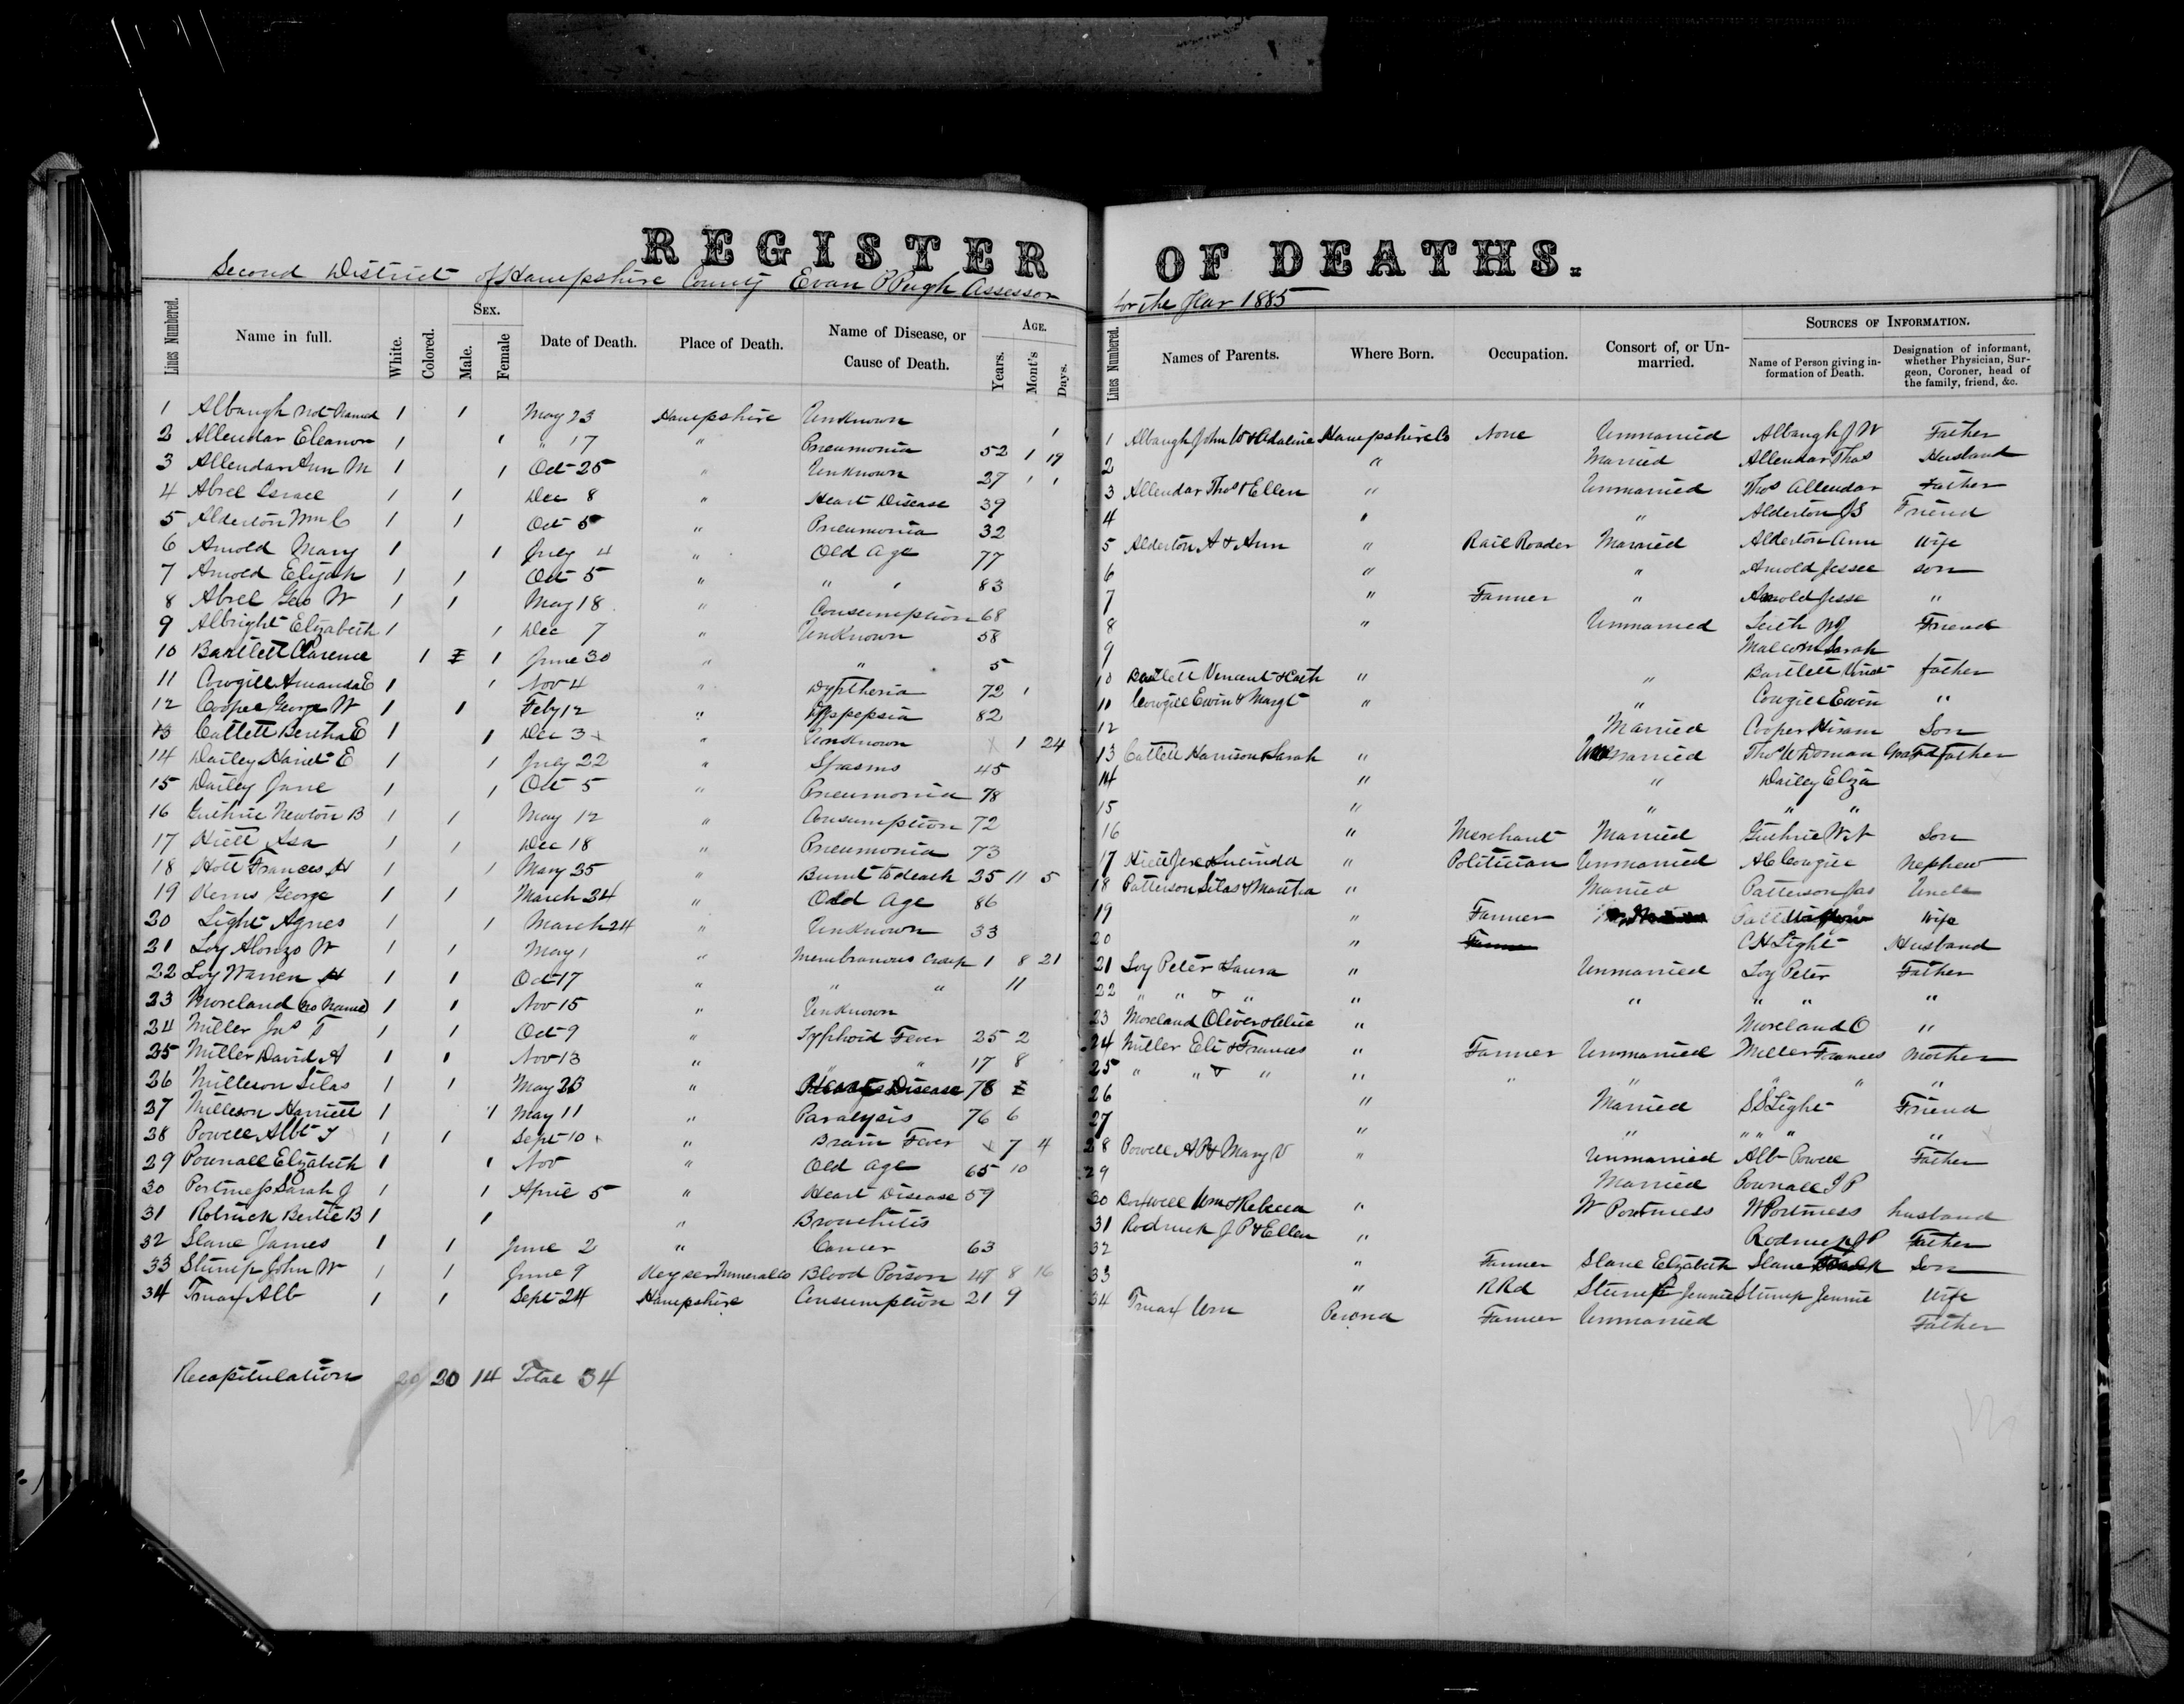 REGISTER OF DEATHS.
Second District of Hampshire County Evan P Pugh Assessor for the Year 1885
Lines Numbered. Name in full. White. Colored. SEX. Male. Female Date of Death. Place of Death. Name of Disease, or Cause of Death. AGE. Years. Mont's Days.
1 Albaugh not Named 1 1 May 23 Hampshire Unknown 1
2 Allendar Eleanor 1 1 " 17 " Pneumonia 52 1 19
3 Allendar Ann M 1 1 Oct 25 " Unknown 27 1 1
4 Abrel Israel 1 1 Dec 8 " Heart Disease 39
5 Alderton Wm C 1 1 Oct 5 " Pneumonia 32
6 Arnold Mary 1 1 July 4 " Old Age 77
7 Arnold Elijah 1 1 Oct 5 " " " 83
8 Abrel Geo W 1 1 May 18 " Consumption 68
9 Albright Elizabeth 1 1 Dec 7 " Unknown 58
10 Bartlett Clarence 1 1 June 30 " " 5
11 Cowgill Amanda E 1 1 Nov 4 " Dyptheria 72 1
12 Cooper George W 1 1 Feby 12 " Dyspepsia 82
13 Catlett Bertha E 1 1 Dec 3 x " Unknown x 1 24
14 Dailey Hariet E 1 1 July 22 " Spasms 45
15 Dailey Jane 1 1 Oct 5 " Pneumonia 78
16 Guthrie Newton B 1 1 May 12 " Consumption 72
17 Hiett Asa 1 1 Dec 18 " Pneumonia 73
18 Hott Frances H 1 1 May 25 " Burnt to death 25 11 5
19 Kerns George 1 1 March 24 " Old Age 86
20 Light Agnes 1 1 March 24 " Unknown 33
21 Loy Alonzo W 1 1 May 1 " Membranous Croup 1 8 21
22 Loy Warren H 1 1 Oct 17 " " " 11
23 Moreland (no Name) 1 1 Nov 15 " Unknown
24 Miller Jno T 1 1 Oct 9 " Typhoid Fever 25 2
25 Miller David A 1 1 Nov 13 " " " 17 8
26 Milleson Silas 1 1 May 23 " Disease 78
27 Milleson Harriett 1 1 May 11 " Paralysis 76 6
28 Powell Albt T 1 1 Sept 10 x " Brain Fever x 7 4
29 Pownall Elizabeth 1 1 Nov " Old age 65 10
30 Portmess Sarah J 1 1 April 5 " Heart Disease 59
31 Rotruck Bertie B 1 1 " Bronchitis
32 Slane James 1 1 June 2 " Cancer 63
33 Stump John W 1 1 June 9 Keyser Mineral Co Blood Poison 47 8 16
34 Truax Alb 1 1 Sept 24 Hampshire Consumption 21 9
Recapitulation 20 14 Total 34
Lines Numbered. Names of Parents. Where Born. Occupation. Consort of, or Unmarried. SOURCES OF INFORMATION. Name of Person giving information of Death. Designation of informant, whether Physician, Surgeon, Coroner, head of the family, friend, &c.
1 Albaugh John W & Adaline Hampshire Co None Unmarried Albaugh J W Father
2 " Married Allendar Thos Husband
3 Allendar Thos & Ellen " Unmarried Thos Allendar Father
4 " " Alderton JS Friend
5 Alderton A & Ann " Rail Roader Married Alderton Ann Wife
6 " " Arnold Jessee son
7 " Farmer " Arnold Jesse "
8 " Unmarried Friend
9 Malcom Sarah
10 Bartlett Vincent & Cath " " Bartlett father
11 Cowgill Ewin & Margt " " Cowgill Ewin "
12 Married Cooper Hiram Son
13 Catlett Harrison & Sarah " Unmarried Thos W Doman Grandfather
14 " " Dailey Eliza
15 " " " "
16 " Merchant Married Guthrie Son
17 Hiett Jere & Lucinda " Politician Unmarried A C Cowgill Nephew
18 Patterson Silas & Martha " Married Patterson Jas Uncle
19 " Farmer Wife
20 " C H Light Husband
21 Loy Peter & Laura " Unmarried Loy Peter Father
22 " " & " " " " " "
23 Moreland Oliver & " Moreland O "
24 Miller Eli & Frances " Farmer Unmarried Miller Frances Mother
25 " " & " " " " " " "
26 " Married S S Light Friend
27 " " " " " "
28 Powell A P & Mary V " Unmarried Alb Powell Father
29 Married Pownall J P
30 Boxwell Wm & Rebecca " W Portmess W Portmess husband
31 Rodruck J P & Ellen " Rodruck J P Father
32 " Farmer Slane Elizabeth Slane Son
33 " R Rd Stump Jennie Stump Jennie Wife
34 Truax Wm Farmer Unmarried Father